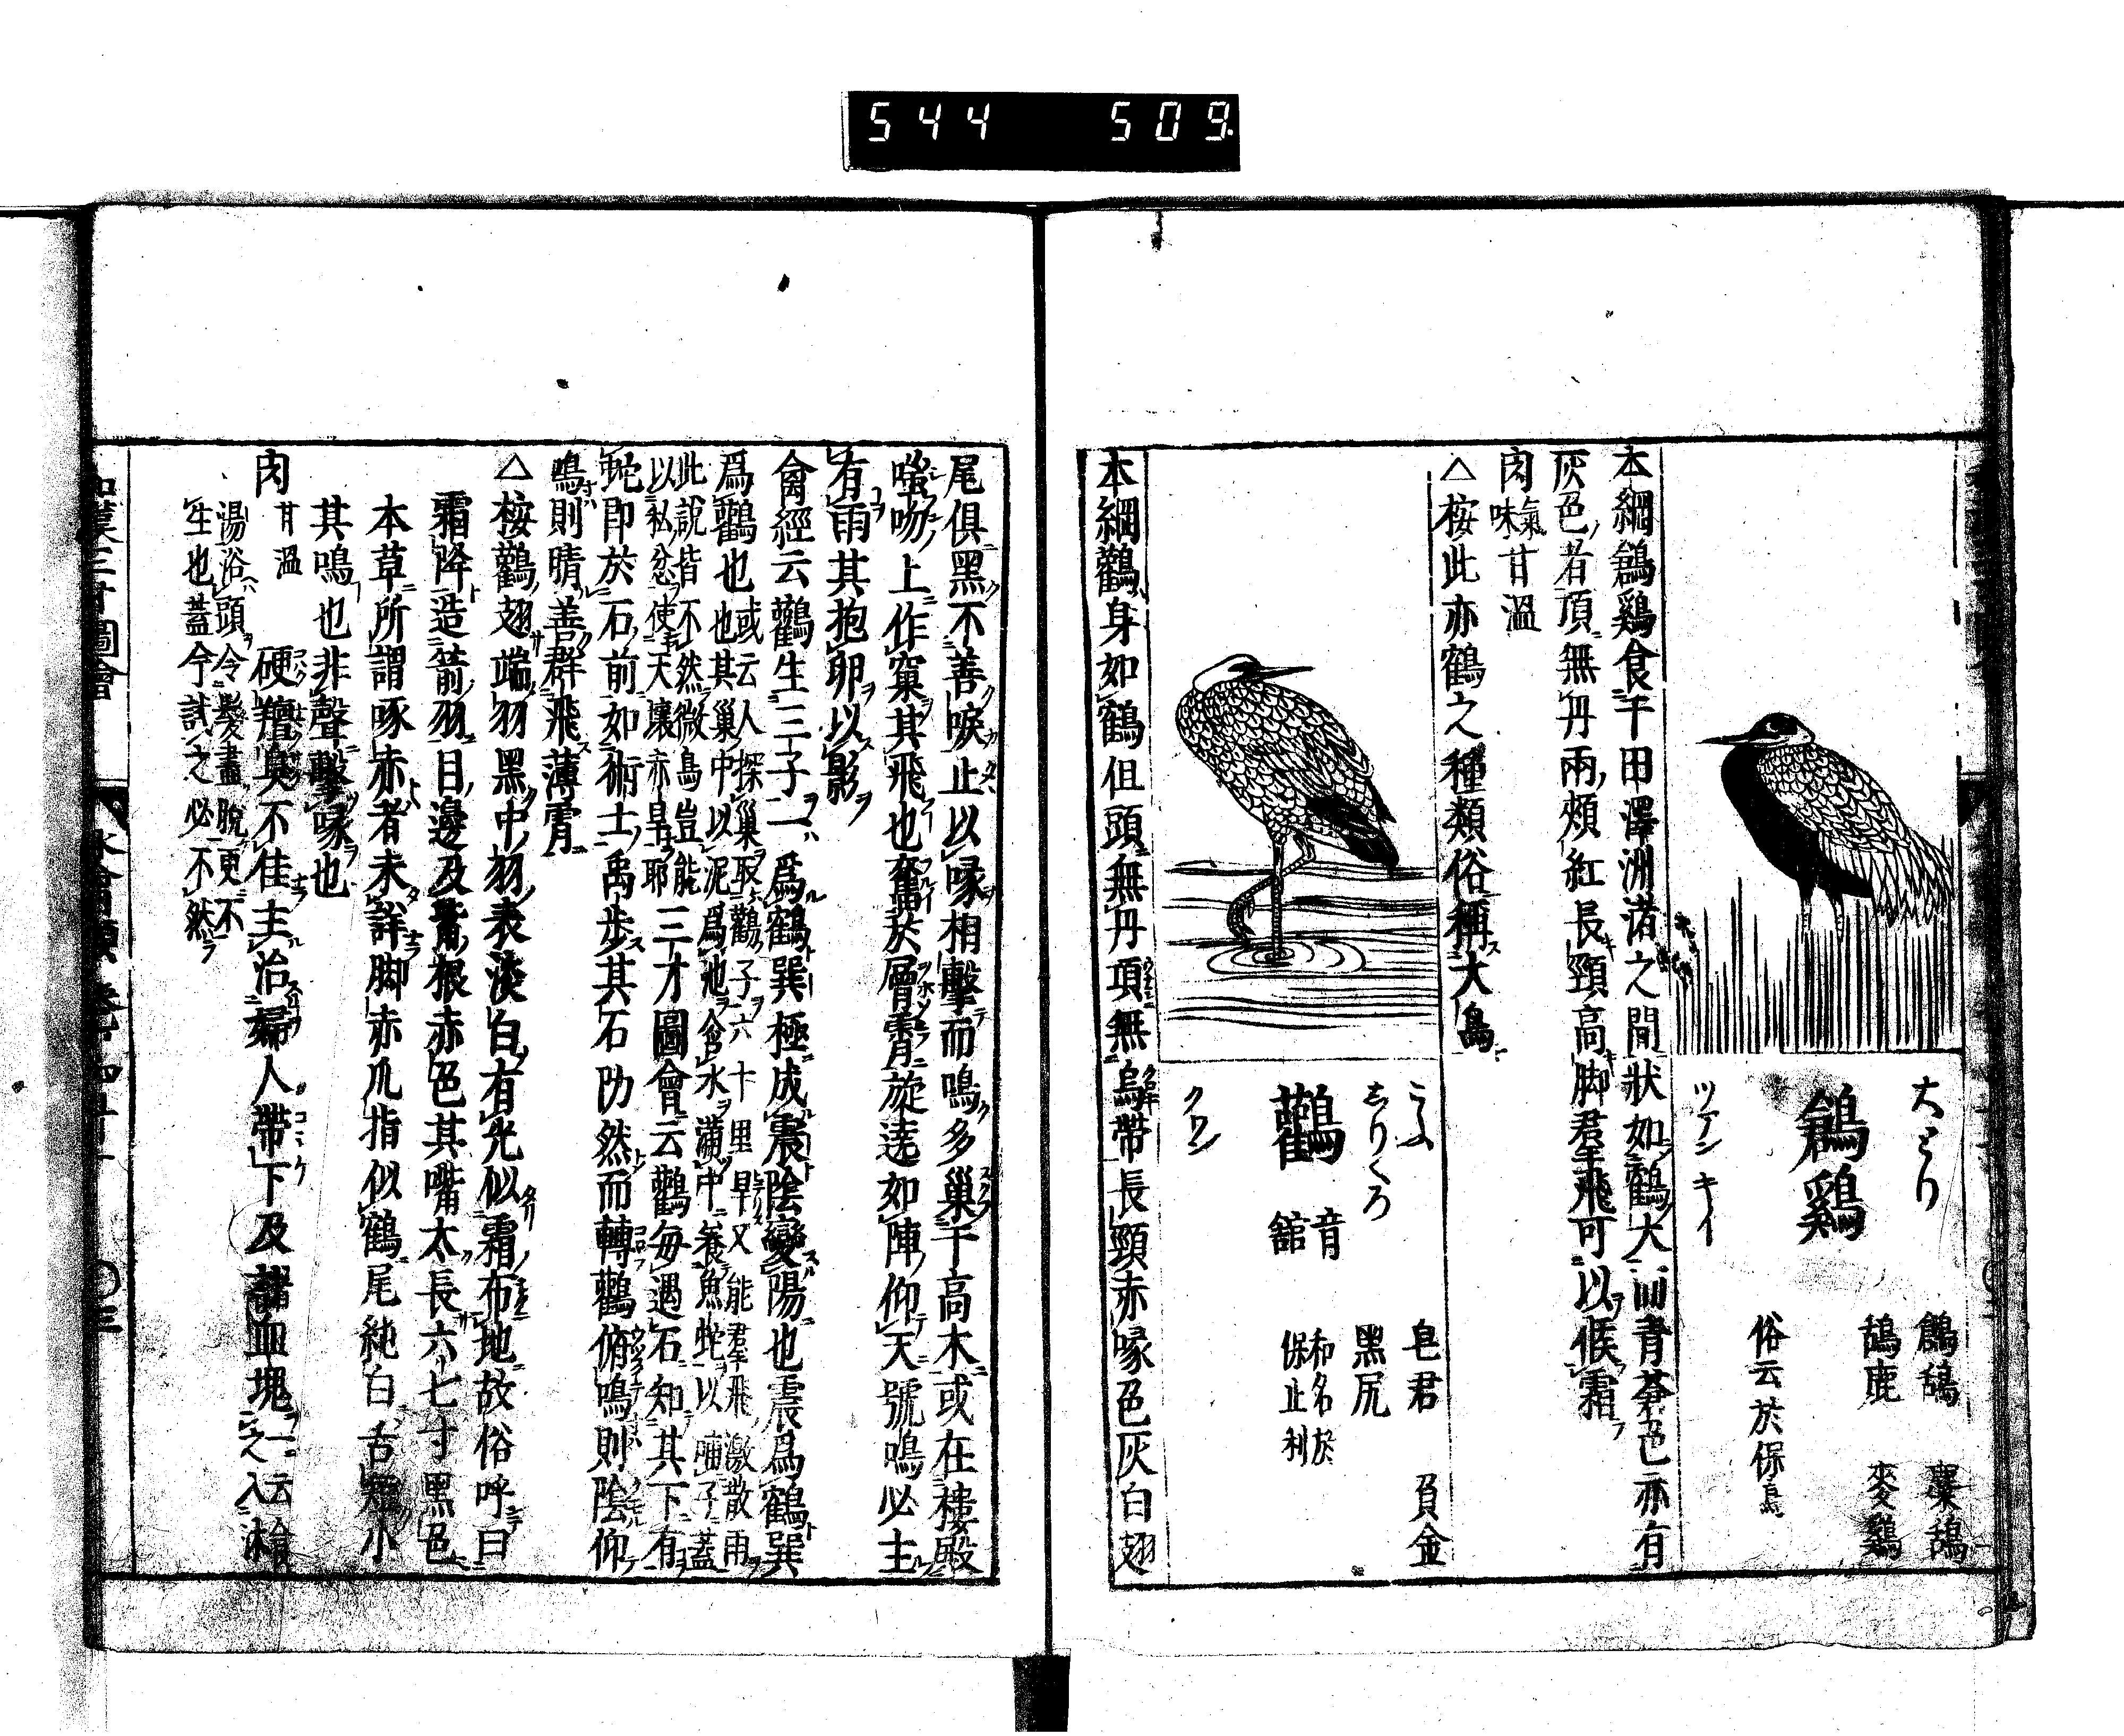 544 509.
大とり
鶬鷄
ツアン キイ
鶬鴰 麋鴰
鴰鹿 麥鷄
俗云於保止利
本綱鶬鷄食于田澤洲渚之間狀如鶴大而青蒼色亦有
灰色者頂無丹兩頰紅長頸高脚群飛可以候霜
肉 氣味 甘溫
△按此亦鶴之種類俗稱大鳥
こふ
しりくろ
鸛 音舘
クワン
皂君 負金
黑尻
和名於保止利
本綱鸛身如鶴但頭無丹項無烏帶長頸赤喙色灰白翅
尾俱黑不善唳止以喙相擊而鳴多巢于高木或在樓殿
嗤吻上作窠其飛也奮於層霄旋遶如陣仰天號鳴必主
有雨其抱卵以影
禽經云鸛生三子一爲鶴巽極成震陰變陽也震爲鶴巽
爲鸛也 或云人探巢取鸛子六十里旱又能群飛激散雨
也其巢中以泥爲池含水滿中養魚蛇以哺子蓋
此說皆不然微鳥豈能
以私忿使天壤亦旱耶 三才圖會云鸛每遇石知其下有
蛇即於石前如術士禹步其石防然而轉鸛俯鳴則陰仰
鳴則晴善群飛薄霄
△按鸛翅端羽黑中羽表淡白有光似霜布地故俗呼曰
霜降造箭羽目邊及觜根赤色其嘴太長六七寸黑色
本草所謂啄赤者未詳脚赤爪指似鶴尾純白舌短小
其鳴也非聲擊喙也
肉 甘溫 硬羶臭不佳主治婦人帶下及諸血塊 一云鸛之入沐
湯浴頭令髮盡脫更不
生也蓋今試之必不然
和漢三才圖會 水禽類 卷ノ四十一 ○三